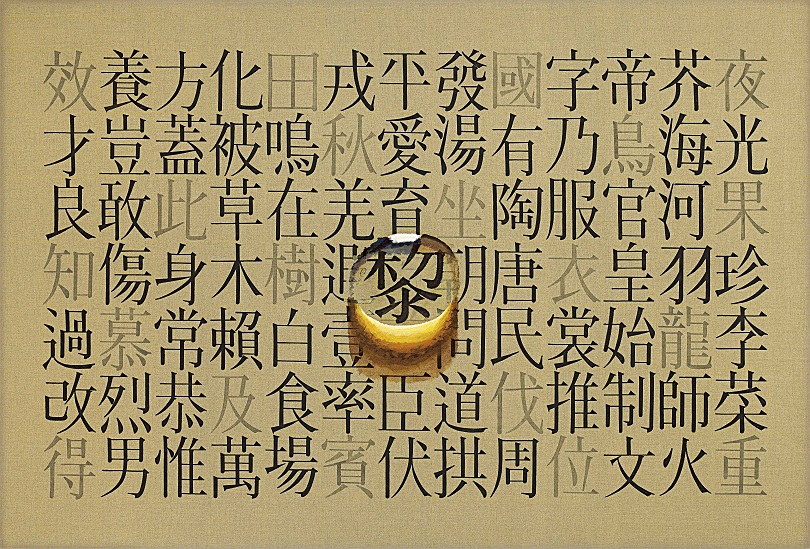 夜光果珍李菜重
芥海河羽龍師火
帝鳥官皇始制文
字乃服衣裳推位
國有陶唐民伐周
發湯坐朝問道拱
平愛育黎臣伏
戎秋羌遐壹率賓
田鳴在樹白食場
化被草木賴及萬
方蓋此身常恭惟
養豈敢傷慕烈男
效才良知過改得